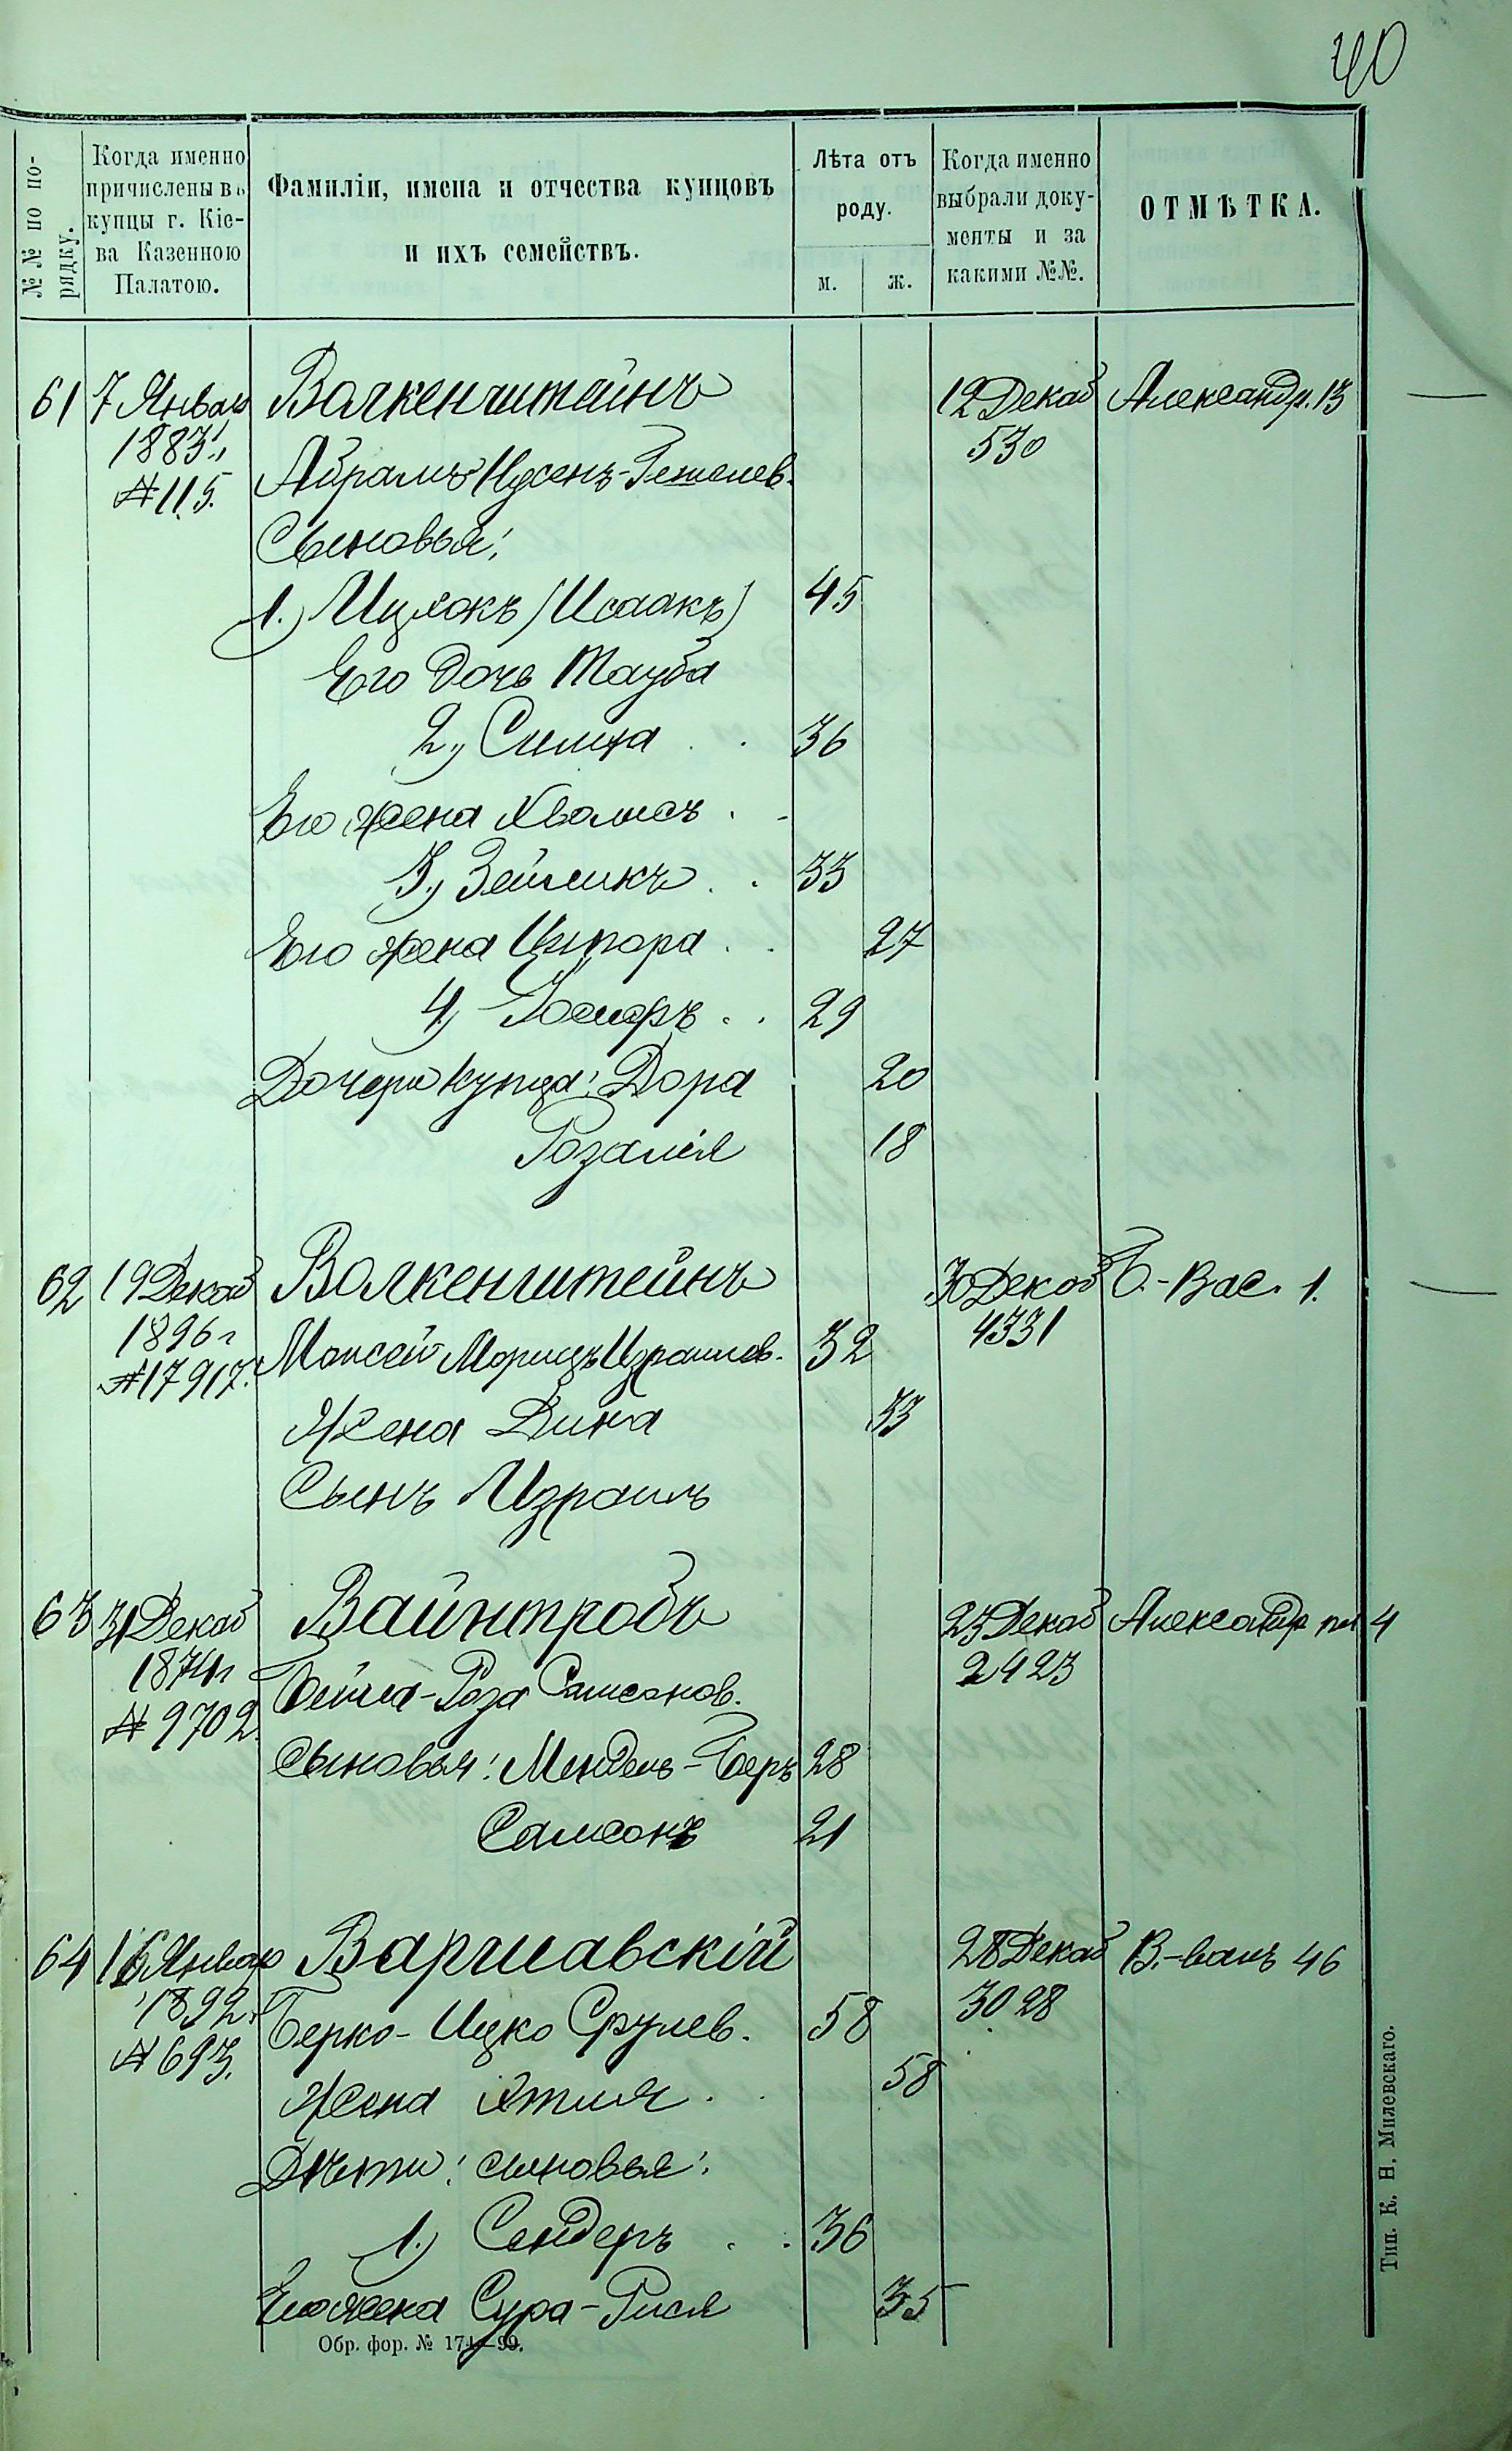 40
№№ по по-
рядку.
Когда именно
причислены въ
купцы г. Кіе-
ва Казенною
Палатою.
Фамиліи, имена и отчества купцовъ
и ихъ семействъ.
Лѣта отъ
роду.
м. ж.
Когда именно
выбрали доку-
менты и за
какими №№.
ОТМѢТКА.
61 7 Январ Волкенштейнъ 12 Декаб Александр. 13
1883 г. 530
№ 115. Абрамъ Нусенъ-Гешелев.
Сыновья:
1.) Ицхокъ (Исаакъ) 45
Его дочь Тауба
2.) Симха . . 36
Его жена Хволисъ . .
3.) Зейликъ . . 33
Его жена Ципора . . 27
4.) Іосифъ . . 29
Дочери купца: Дора 20
Розалія 18
62 19 Декаб Волкенштейнъ 30 Декаб Б.-Вас. 1.
1896 г 4331
№ 17917. Моисей Морицъ Израилев. 32
Жена Дина 33
Сынъ Израиль
63 31 Декаб Вайнтробъ 23 Декаб Александр пл 4
1874 г 2423
№ 9702. Бейла-Роза Самсонов.
Сыновья: Мендель-Беръ 28
Самсонъ 21
64 16 Январ Варшавскій 28 Декаб В.-валъ 46
1892 г 3028
№ 693. Берко-Ицко Срулев. 58
Жена Этля . . 58
Дѣти: сыновья:
1.) Сендеръ . . 36
Его жена Сура-Рися 35
Обр. фор. № 174—99.
Тип. К. Н. Милевскаго.